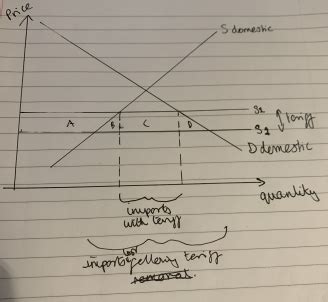 Price
S domestic
S2
tariff
A
B
C
D
S1
D domestic
quantity
imports
with tariff
imports following tariff
removal.